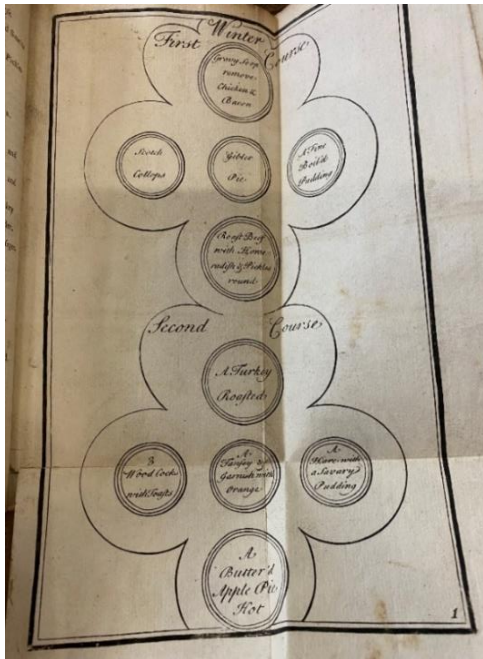 Winter
First Course
Gravy Soop
remove
Chicken &
Bacon
Scotch
Collops
Giblet
Pie
A Fine
Boil'd
Pudding
Roast Beef
with Horse
radish & Pickles
round
Second Course
A Turkey
Roasted
3
Wood Cocks
with Toasts
A
Tansey &
Garnish with
Orange
A
Hare with
a Savary
Pudding
A
Butter'd
Apple Pie
Hot
1